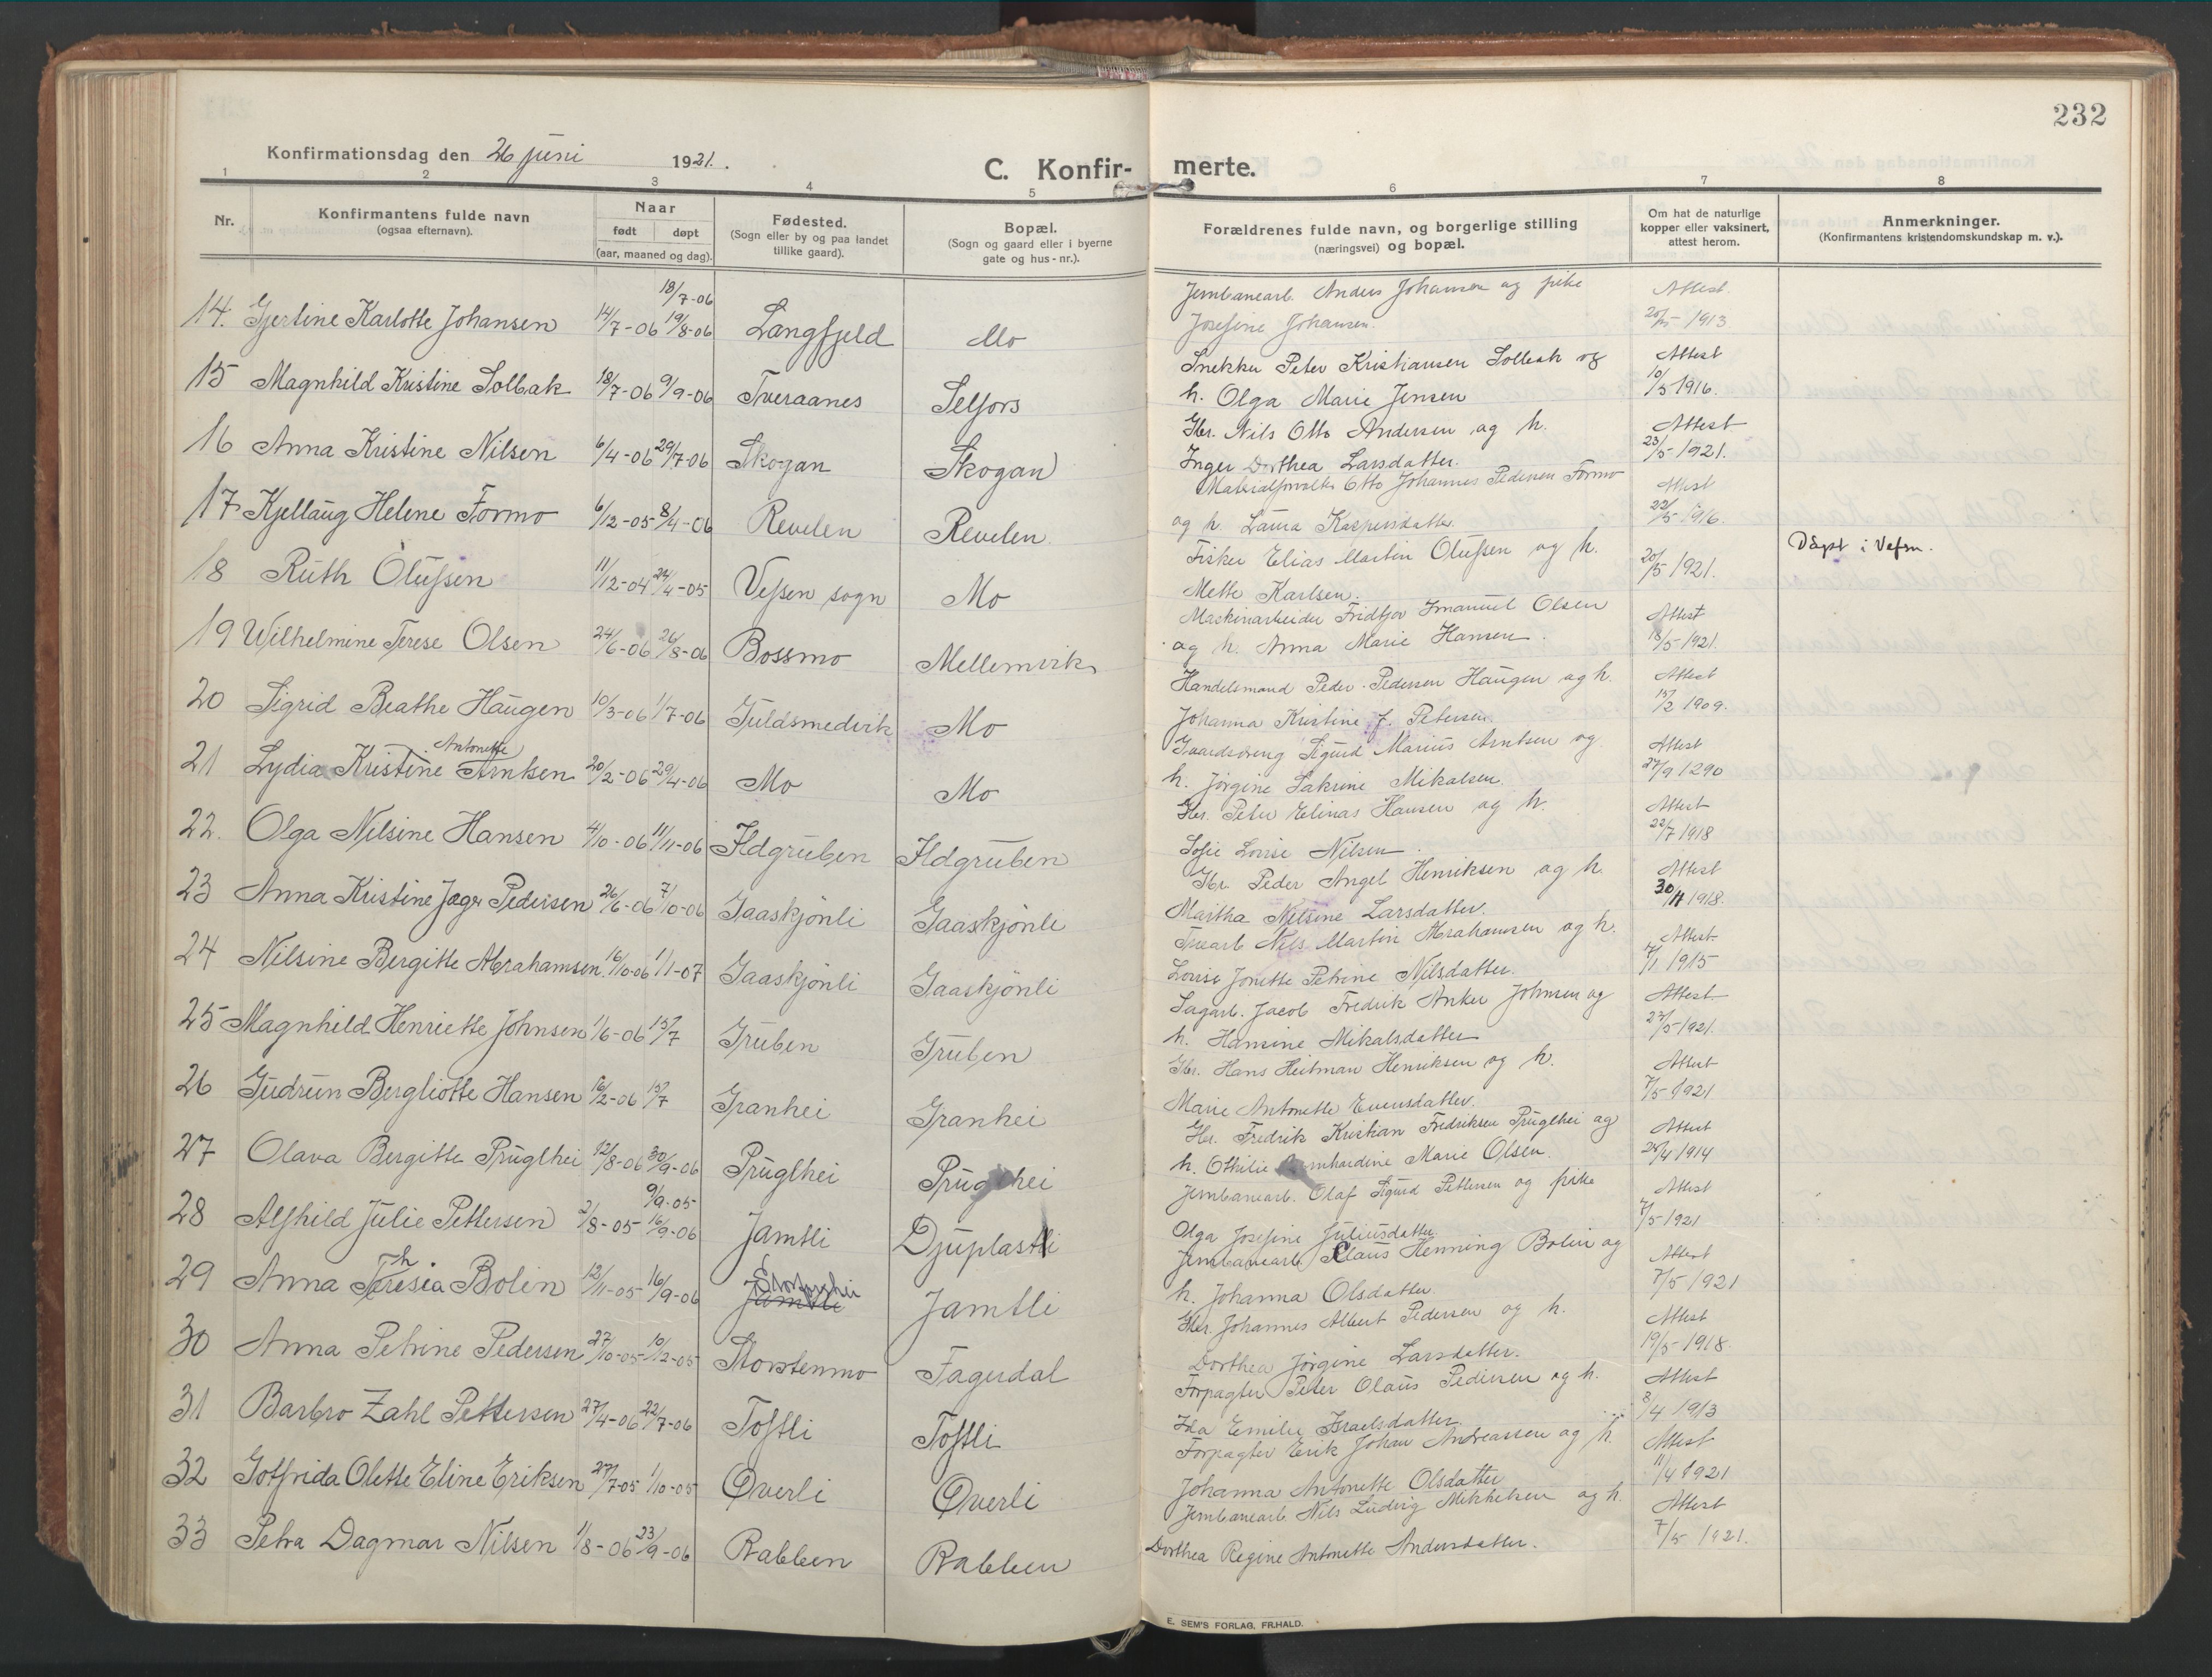 232
Konfirmationsdag den 26 juni 1921.
C. Konfir- merte.
1 2 3 4 5 6 7 8
Nr.
Konfirmantens fulde navn
(ogsaa efternavn).
Naar
født døpt
(aar, maaned og dag).
Fødested.
(Sogn eller by og paa landet
tillike gaard).
Bopæl.
(Sogn og gaard eller i byerne
gate og hus-nr.).
Forældrenes fulde navn, og borgerlige stilling
(næringsvei) og bopæl.
Om hat de naturlige
kopper eller vaksinert,
attest herom.
Anmerkninger.
(Konfirmantens kristendomskundskap m. v.).
18/7-06
14. Gjertine Karlotte Johansen 14/7-06 19/8-06 Langfjeld Mo
Jernbanearb. Anders Johansen og pike Attest.
Josefine Johansen. 1913
15 Magnhild Kristine Solbak 18/7-06 9/9-06 Tveraanes Selfors
Snekker Peter Kristiansen Solbak og Attest
h. Olga Marie Jensen 10/5 1916.
16 Anna Kristine Nilsen 6/4-06 29/7-06 Skogan Skogan
Gbr. Nils Otto Andersen og h. Attest
Inger Dorthea Larsdatter. 23/5 1921.
17 Kjellaug Helene Formo 6/12-05 8/4-06 Revelen Revelen
Materialforvalter Otto Johannes Pedersen Formo Attest
og h. Laura Kaspersdatter. 22/5 1916.
18 Ruth Olufsen 11/12-04 24/4-05 Vefsen sogn Mo
Fisker Elias Martin Olufsen og h. 20/5 1921. Døpt i Vefsn.
Mette Karlsen.
19 Wilhelmine Terese Olsen 24/6-06 26/8-06 Bossmo Mellemvik
Maskinarbeider Fridtjov Imanuel Olsen Attest
og h. Anna Marie Hansen. 18/5-1921.
20 Sigrid Beathe Haugen 10/3-06 1/7-06 Guldsmedvik Mo
Handelsmand Peder Pedersen Haugen og h. Attest
Johanna Kristine J. Petersen. 15/2 1909.
Antonette
21 Lydia Kristine Arntsen 20/2-06 29/4-06 Mo Mo
Gaardsdreng Sigurd Marius Arntsen og Attest
h. Jørgine Sakrine Mikalsen. 27/9 1290
22. Olga Nilsine Hansen 4/10-06 11/11-06 Ildgruben Ildgruben
Gbr. Peter Elinas Hansen og h. Attest
Sofie Lovise Nilsen. 22/7 1918
23 Anna Kristine Jæger Pedersen 26/6-06 7/10-06 Gaaskjönli Gaaskjönli
Gbr. Peder Angel Henriksen og h. Attest
Martha Nilsine Larsdatter. 30/11 1918.
24 Nilsine Bergitte Abrahamsen 16/10-06 1/1-07 Gaaskjönli Gaaskjönli
Nils Martin Abrahamsen og h. Attest
Lovise Jonette Petrine Nilsdatter. 1915
25 Magnhild Henriette Johnsen 1/6-06 15/7 Gruben Gruben
Sagarb. Jacob Fredrik Anker Johnsen og Attest
h. Hansine Mikalsdatter 27/5-1921.
26 Gudrun Bergliotte Hansen 16/2-06 15/7 Granhei Granhei
Gbr. Hans Heitman Henriksen og h. Attest
Marie Antonette Evensdatter. 7/5 1921
27 Olava Bergitte Pruglhei 12/8-06 30/9-06 Pruglhei Pruglhei
Gbr. Fredrik Kristian Fredriksen Pruglhei og Attest
h. Othilie Marie Olsen. 1914
9/9-05
28 Alfhild Julie Pettersen 2/8-05 16/9-06 Jamtli Djuplastli
Jernbanearb. Olaf Sigurd Pettersen og pike Attest
Olga Josefine Juliusdatter 7/5 1921
29 Anna Theresia Bolin 12/11-05 16/9-06 Jamtli Jamtli
Jernbanearb Claus Henning Bolin og Attest
h. Johanna Olsdatter 7/5 1921
30 Anna Petrine Pedersen 27/10-05 10/12-05 Storstenmo Fagerdal
Gbr. Johannes Albert Pedersen og h. Attest
Dorthea Jörgine Larsdatter. 19/5-1918.
31 Barbro Zahl Pettersen 27/4-06 22/7-06 Toftli Toftli
Forpagter Peter Olaus Pedersen og h. Attest
Ida Emilie Israelsdatter. 8/4 1913
32 Gotfrida Olette Eline Eriksen 27/7-05 1/10-05 Øverli Øverli
Forpagter Erik Johan Andreassen og h. Attest
Johanna Antonette Olsdatter 11/4 1921
33 Petra Dagmar Nilsen 1/8-06 23/9-06 Rabben Rabben
Jernbanearb. Nils Ludvig Mikkelsen og h. Attest
Dorthea Regine Antonette Andersdatter. 7/5 1921.
E. SEM'S FORLAG, FR.HALD.